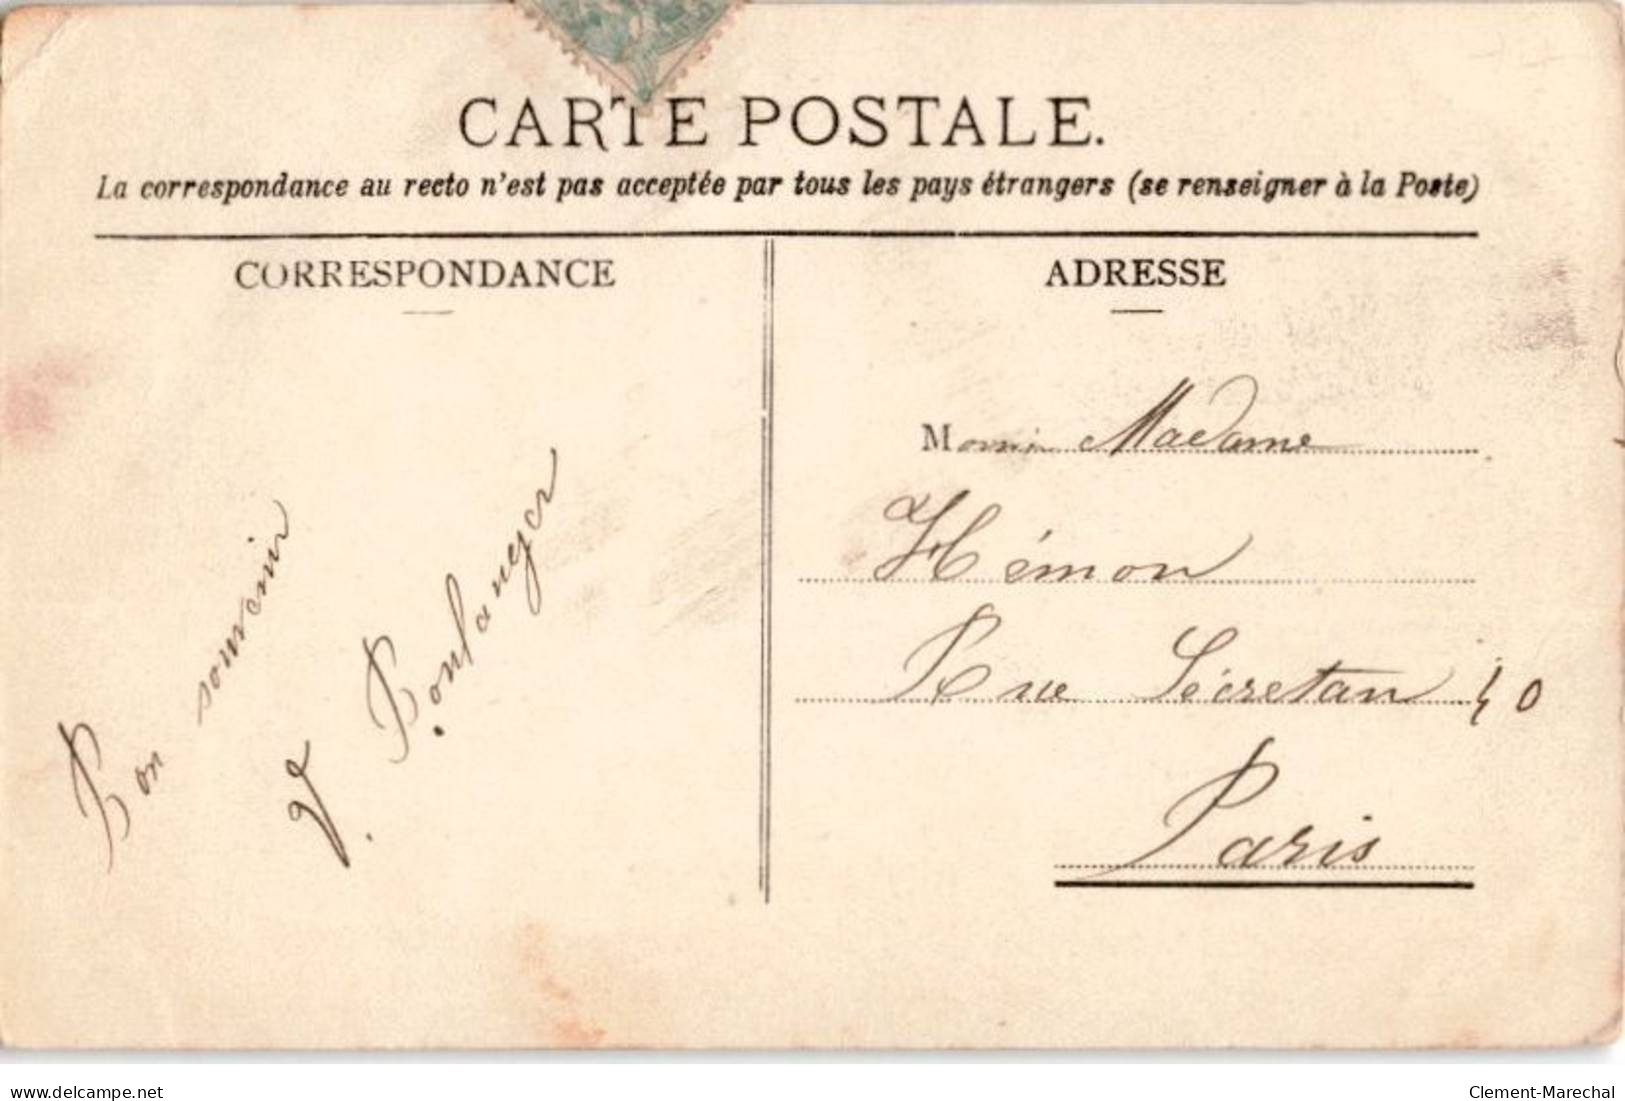 CARTE POSTALE.
La correspondance au recto n'est pas acceptée par tous les pays étrangers (se renseigner à la Poste)
CORRESPONDANCE
Bon souvenir
V. Boulanger
ADRESSE
M Madame
Hémon
Rue Sécretan 40
Paris
delcampe.net
Clement-Marechal